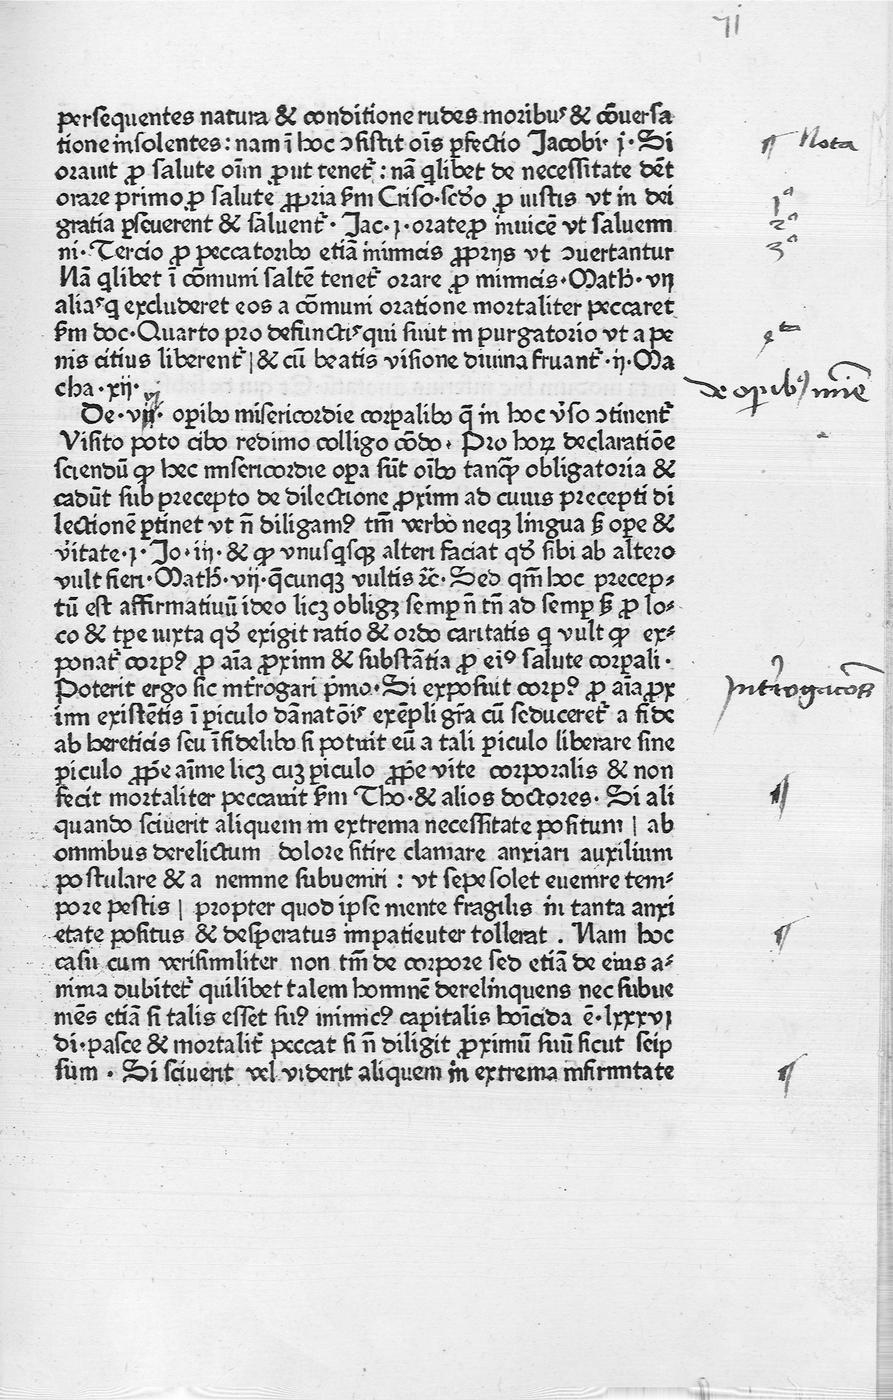 71
persequentes natura & conditione rudes moribuˢ & cōuersa
tione insolentes : nam ī hoc ɔsistit oīs ꝑfectio Jacobi · j · Si
orauit ꝓ salute oīm ꝓut tenet᷑ : nā qlibet de necessitate dēt
orare primo ꝓ salute ꝓpria ẜm Criso·scd̄o ꝓ iustis vt in dei
gratia ꝑseuerent & saluent᷑ · Jac · j · orate ꝓ inuicē vt saluem
ni · Tercio ꝓ peccatoribꝰ etiā inimicis ꝓprijs vt ɔuertantur
Nā qlibet ī cōmuni saltē tenet᷑ orare ꝓ inimicis · Math̄ · vij
aliaˢ q excluderet eos a cōmuni oratione mortaliter peccaret
ẜm doc · Quarto pro defunctiˢ qui sūut in purgatorio vt a pe
nis citius liberent᷑ | & cū beatis visione diuina fruant᷑ · ij · Ma
cha · xij ·
De · vij · oꝑibꝰ misericordie corꝑalibꝰ q̄ in hoc v̄so ɔtinent᷑
Visito poto cibo redimo colligo cōdo · Pro hoꝝ declaratiōe
sciendū ꝙ hec misericordie oꝑa sūt oībꝰ tanꝙ̄ obligatoria &
cadūt sub precepto de dilectione ꝓximi ad cuius precepti di
lectionē ꝑtinet vt n̄ diligamꝰ tm̄ verbo neqꝫ lingua ß oꝑe &
v̄itate · j · Jo · iij · & ꝙ vnusqsqꝫ alteri faciat qd̄ sibi ab altero
vult fieri · Math̄ · vij · q̄cunqꝫ vultis ⁊c̄ · Sed qm̄ hoc precep⸗
tū est affirmatiuū ideo licꝫ obligꝫ semꝑ n̄ tn̄ ad semꝑ ß ꝓ lo⸗
co & tꝑe iuxta qd̄ exigit ratio & ordo caritatis q vult ꝙ ex⸗
ponat᷑ corpꝰ ꝓ aīa ꝓximi & substātia ꝓ eiꝰ salute corꝑali ·
Poterit ergo sic int̄rogari p̄mo · Si exposiuit corpꝰ ꝓ aīa ꝓx
imi existētis ī ꝑiculo dānatōīˢ exēpli gr̄a cū seduceret᷑ a fide
ab hereticis seu īfidelibꝰ si potuit eū a tali ꝑiculo liberare sine
ꝑiculo ꝓṗe aīme licꝫ cuꝫ ꝑiculo ꝓṗe vite corporalis & non
fecit mortaliter peccauit ẜm Tho · & alios doctores · Si ali
quando sciuerit aliquem in extrema necessitate positum | ab
omnibus derelictum dolore sitire clamare anxiari auxilium
postulare & a nemine subueniri : vt sepe solet euenire tem⸗
pore pestis | propter quod ipse mente fragilis in tanta anxi
etate positus & desperatus impatieuter tollerat . Nam hoc
casu cum verisimiliter non tm̄ de corpore sed etiā de eius a⸗
nima dubitet᷑ quilibet talem hominē derelinquens nec subue
niēs etiā si talis esset suꝰ inimicꝰ capitalis hoīcida ē · lxxxvj
di · pasce & mortalit᷑ peccat si n̄ diligit ꝓximū suū sicut seip
sum · Si sciuerit vel viderit aliquem in extrema infirmitate
¶ Nota
1ᵃ
2ᵃ
3ᵃ
4ᵗᵃ
vj
de oꝑibꝰ mīe
Int̄rogacōēs
¶
¶
¶